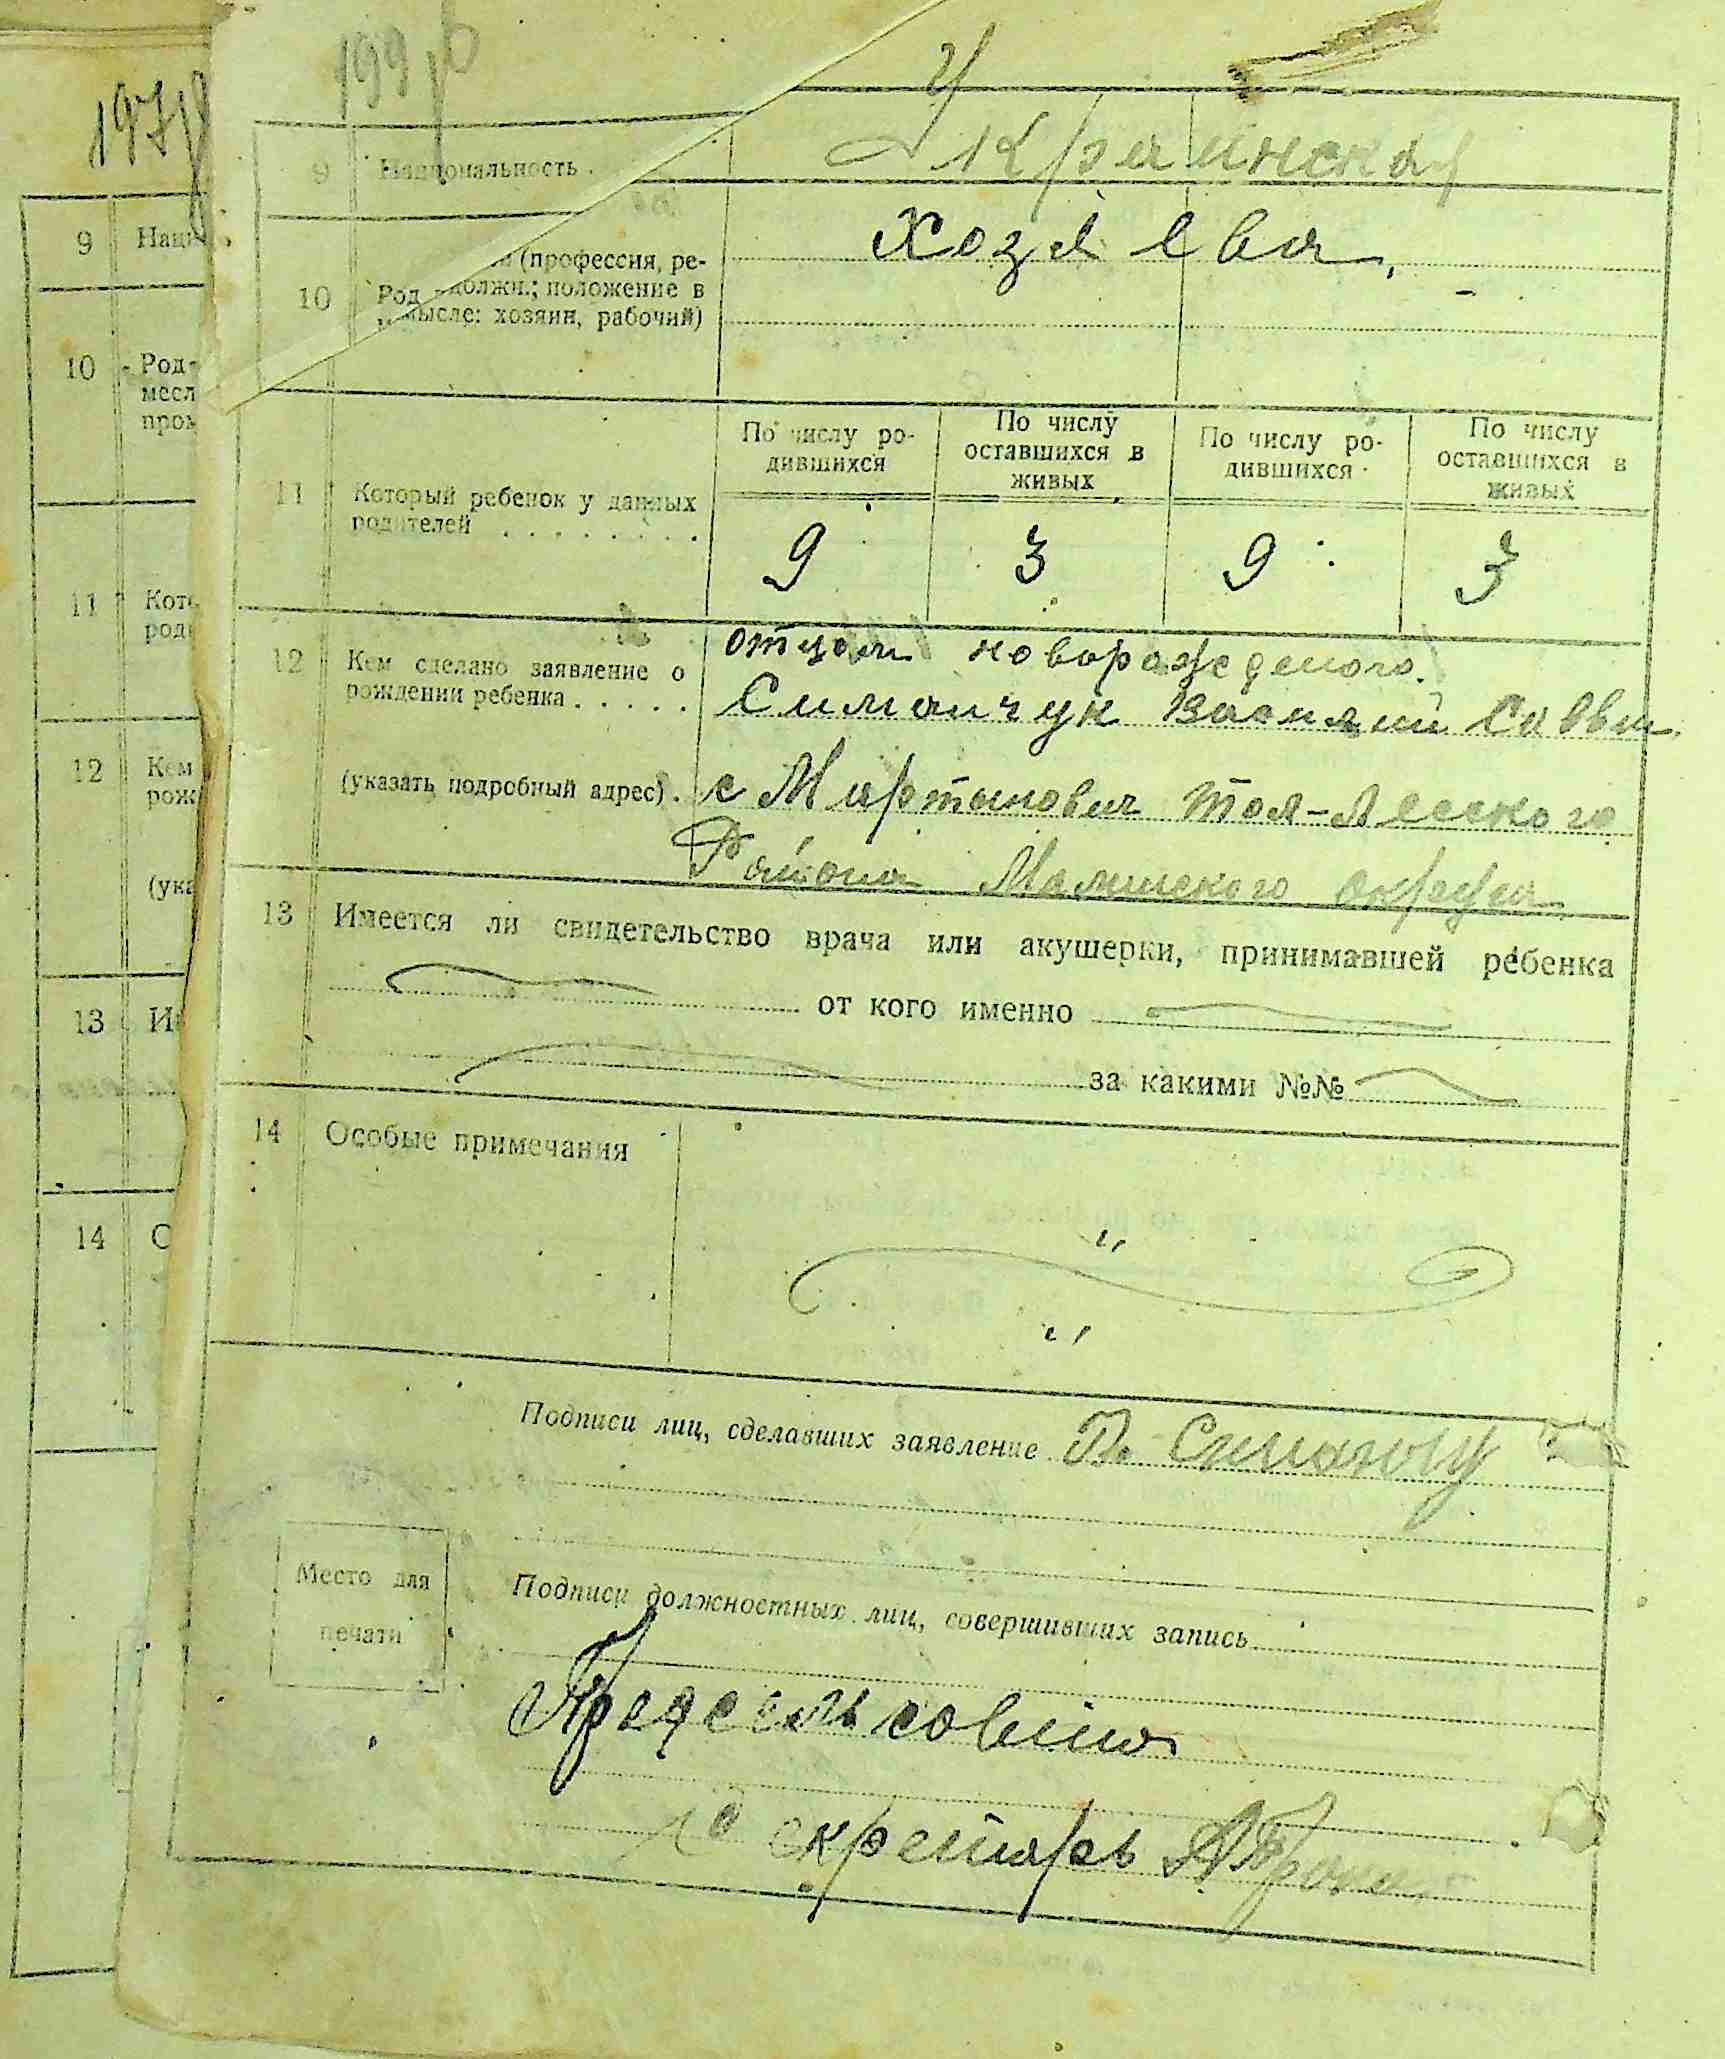 197
199
9 Национальность.
Украинская
10 Род (профессия, ре-
должн.; положение в
мысле: хозяин, рабочий)
Хозяева
11 Который ребенок у данных
родителей . . . . . . . .
По числу ро-
дившихся
По числу
оставшихся в
живых
По числу ро-
дившихся
По числу
оставшихся в
живых
9 3 9 3
12 Кем сделано заявление о
рождении ребенка . . . . .
отцом новорожденого.
Симончук Василий Саввич
(указать подробный адрес) .
с Мартынович Тол-Лесского
Района Малинского округа
13 Имеется ли свидетельство врача или акушерки, принимавшей ребенка
от кого именно
за какими №№
14 Особые примечания
Подписи лиц, сделавших заявление В. Симончу
Место для
печати
Подписи должностных лиц, совершивших запись
Предсельсовета
Секретарь
9 Наци
10 Род
месл
пром
11 Кото
роди
12 Кем
рож
(ука
13 И
14 О